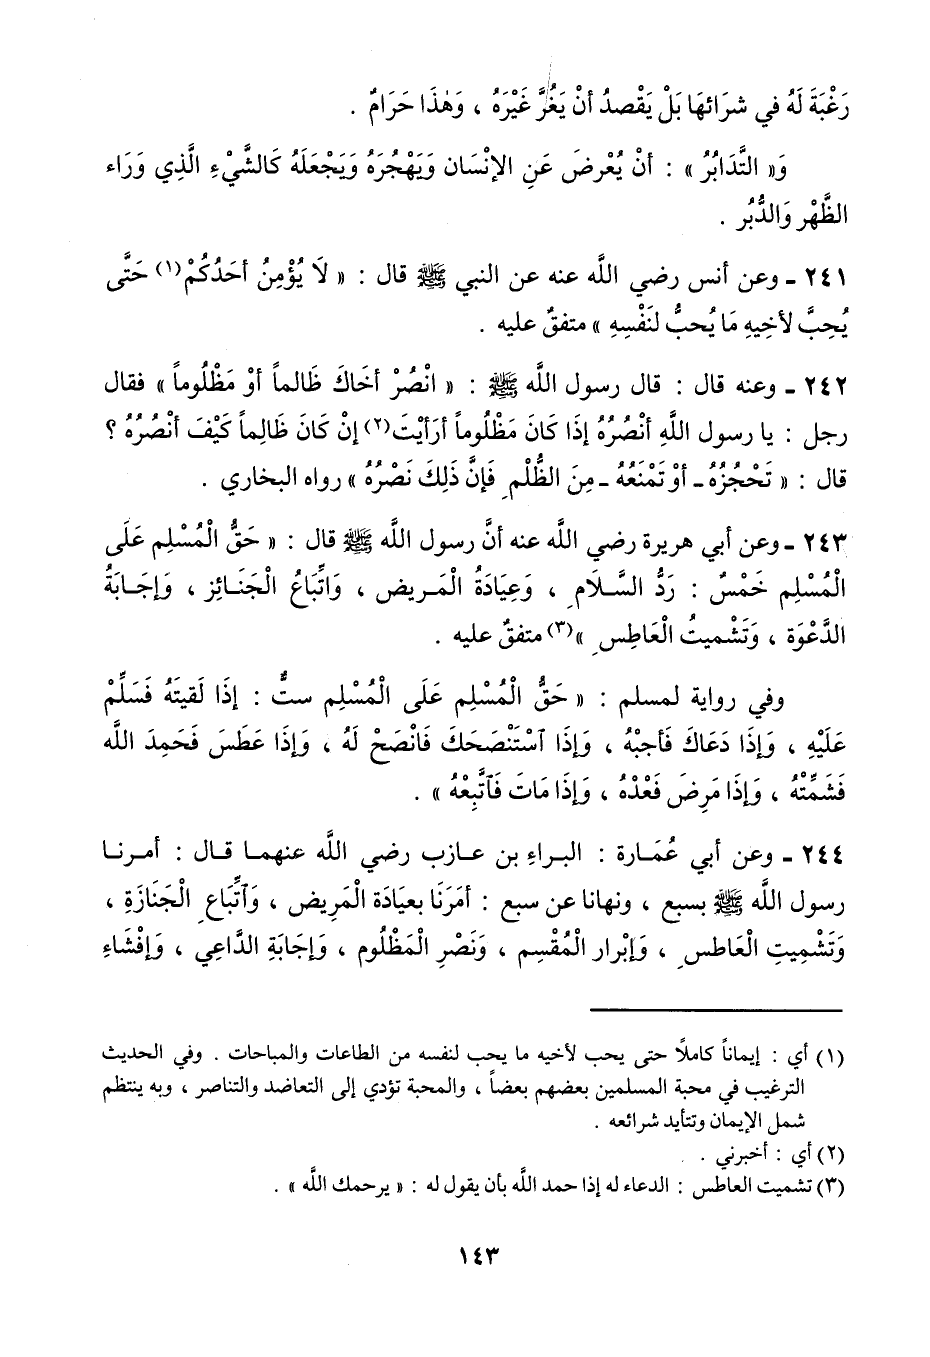 رَغْبَةَ لَهُ في شرَائهَا بَلْ يَقْصدُ أنْ يَغُرَّ غَيْرَهُ ، وَهٰذَا حَرَامٌ .
وَ« التَّدَابُرُ » : أنْ يُعْرضَ عَنِ الإنْسَان وَيَهْجُرَهُ وَيَجْعَلَهُ كَالشَّيْءِ الَّذِي وَرَاء
الظَّهْر وَالدُّبُر .
٢٤١ ـ وعن أنس رضي اللَّه عنه عن النبي ﷺ قال : « لَا يُؤْمِنُ أحَدُكُمْ(١) حَتَّى
يُحِبَّ لأخِيهِ مَا يُحبُّ لنَفْسِهِ » متفقٌ عليه .
٢٤٢ ـ وعنه قال : قال رسول اللَّه ﷺ : « انْصُرْ أخَاكَ ظَالماً أوْ مَظْلُوماً » فقال
رجل : يا رسول اللَّهِ أنْصُرُهُ إذَا كَانَ مَظْلُوماً أرَأيْتَ(٢) إنْ كَانَ ظَالِماً كَيْفَ أنْصُرُهُ ؟
قال : « تَحْجُزُهُ ـ أوْ تَمْنَعُهُ ـ مِنَ الظُّلْمِ فَإنَّ ذَلِكَ نَصْرُهُ » رواه البخاري .
٢٤٣ ـ وعن أبي هريرة رضي اللَّه عنه أنَّ رسول اللَّه ﷺ قال : « حَقُّ الْمُسْلِم عَلَى
الْمُسْلِم خَمْسٌ : رَدُّ السَّلَامِ ، وَعِيَادَةُ الْمَريض ، وَاتِّبَاعُ الْجَنَائِز ، وَإجَابَةُ
الدَّعْوَة ، وَتَشْميتُ الْعَاطِسِ »(٣) متفقٌ عليه .
وفي رواية لمسلم : « حَقُّ الْمُسْلِم عَلَى الْمُسْلِم ستٌّ : إذَا لَقيتَهُ فَسَلِّمْ
عَلَيْهِ ، وَإذَا دَعَاكَ فَأجبْهُ ، وَإذَا ٱسْتَنْصَحَكَ فَانْصَحْ لَهُ ، وَإذَا عَطَسَ فَحَمِدَ اللَّه
فَشَمِّتْهُ ، وَإذَا مَرِضَ فَعُدْهُ ، وَإذَا مَاتَ فَٱتَّبِعْهُ » .
٢٤٤ ـ وعن أبي عُمَارة : البراءِ بن عازب رضي اللَّه عنهما قال : أمرنا
رسول اللَّه ﷺ بسبع ، ونهانا عن سبع : أمَرَنَا بعيَادَة الْمَرِيض ، وَٱتِّبَاعِ الْجَنَازَةِ ،
وَتَشْمِيتِ الْعَاطسِ ، وَإبْرار الْمُقْسِم ، وَنَصْرِ الْمَظْلُوم ، وَإجَابَةِ الدَّاعِي ، وَإفْشَاءِ
(١) أي : إيماناً كاملاً حتى يحب لأخيه ما يحب لنفسه من الطاعات والمباحات . وفي الحديث
الترغيب في محبة المسلمين بعضهم بعضاً ، والمحبة تؤدي إلى التعاضد والتناصر ، وبه ينتظم
شمل الإيمان وتتأيد شرائعه .
(٢) أي : أخبرني .
(٣) تشميت العاطس : الدعاء له إذا حمد اللَّه بأن يقول له : « يرحمك اللَّه » .
١٤٣